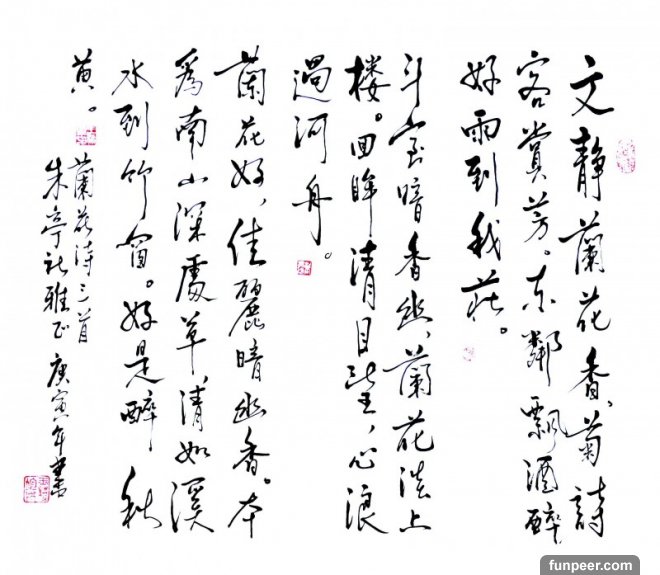 文静蘭花香，菊詩
客賞芳。东鄰飄酒醉
好雨到我莊。
斗室暗香幽，蘭花上
楼。回眸清目望，心浪
過河舟。
蘭花好，佳麗暗幽香。本
為南山深處草，清如溪
水到竹窗。好是醉秋
黄。
蘭花诗三首
朱亭社雅正 庚寅年書
funpeer.com